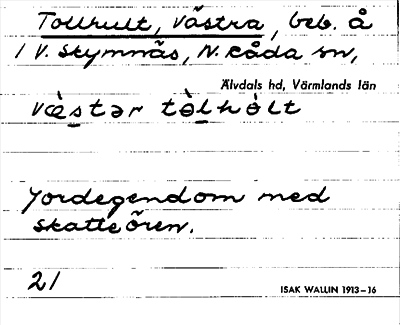 Tollhult, Västra, beb. å
1 V. Skymnäs, N. Råda sn,
Älvdals hd, Värmlands län
væ̀stər tòlhòlt
Jordegendom med
skatteören.
21
ISAK WALLIN 1913–16